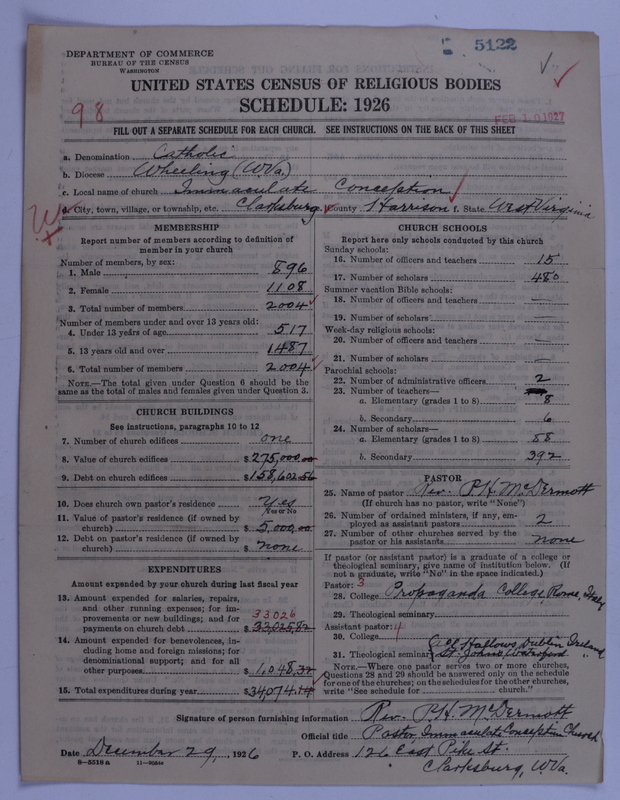 5122
DEPARTMENT OF COMMERCE
BUREAU OF THE CENSUS
WASHINGTON
UNITED STATES CENSUS OF RELIGIOUS BODIES
SCHEDULE: 1926
98
FEB 10 1927
FILL OUT A SEPARATE SCHEDULE FOR EACH CHURCH. SEE INSTRUCTIONS ON THE BACK OF THIS SHEET
a. Denomination Catholic
b. Diocese Wheeling (W.Va.)
c. Local name of church Immaculate Conception
d. City, town, village, or township, etc. Clarksburg e. County Harrison f. State West Virginia
MEMBERSHIP
Report number of members according to definition of
member in your church
Number of members, by sex:
1. Male 896
2. Female 1108
3. Total number of members 2004
Number of members under and over 13 years old:
4. Under 13 years of age 517
5. 13 years old and over 1487
6. Total number of members 2004
NOTE.—The total given under Question 6 should be the
same as the total of males and females given under Question 3.
CHURCH BUILDINGS
See instructions, paragraphs 10 to 12
7. Number of church edifices one
8. Value of church edifices $275,000.00
9. Debt on church edifices $158,602.56
10. Does church own pastor's residence Yes
Yes or No
11. Value of pastor's residence (if owned by
church) $5,000.00
12. Debt on pastor's residence (if owned by
church) $none
EXPENDITURES
Amount expended by your church during last fiscal year
13. Amount expended for salaries, repairs,
and other running expenses; for im-
provements or new buildings; and for 33026
payments on church debt $33025.82
14. Amount expended for benevolences, in-
cluding home and foreign missions; for
denominational support; and for all
other purposes $1,048.32
15. Total expenditures during year $34074.14
CHURCH SCHOOLS
Report here only schools conducted by this church
Sunday schools:
16. Number of officers and teachers 15
17. Number of scholars 480
Summer vacation Bible schools:
18. Number of officers and teachers —
19. Number of scholars —
Week-day religious schools:
20. Number of officers and teachers —
21. Number of scholars —
Parochial schools:
22. Number of administrative officers 2
23. Number of teachers—
a. Elementary (grades 1 to 8) 8
b. Secondary 6
24. Number of scholars—
a. Elementary (grades 1 to 8) 58
b. Secondary 392
PASTOR
25. Name of pastor Rev. P.H. McDermott
(If church has no pastor, write "None")
26. Number of ordained ministers, if any, em-
ployed as assistant pastors 2
27. Number of other churches served by the
pastor or his assistants none
If pastor (or assistant pastor) is a graduate of a college or
theological seminary, give name of institution below. (If
not a graduate, write "No" in the space indicated.)
Pastor: 3
28. College Propaganda College, Rome, Italy
29. Theological seminary
Assistant pastor: 4
30. College
All Hallows, Dublin Ireland
31. Theological seminary St. Johns Waterford "
NOTE.—Where one pastor serves two or more churches,
Questions 28 and 29 should be answered only on the schedule
for one of the churches; on the schedules for the other churches,
write "See schedule for church."
Signature of person furnishing information Rev. P.H. McDermott
Official title Pastor, Immaculate Conception Church
Date December 29, 1926 P. O. Address 126 East Pike St.
8—5518a 11—9024a Clarksburg, W.Va.